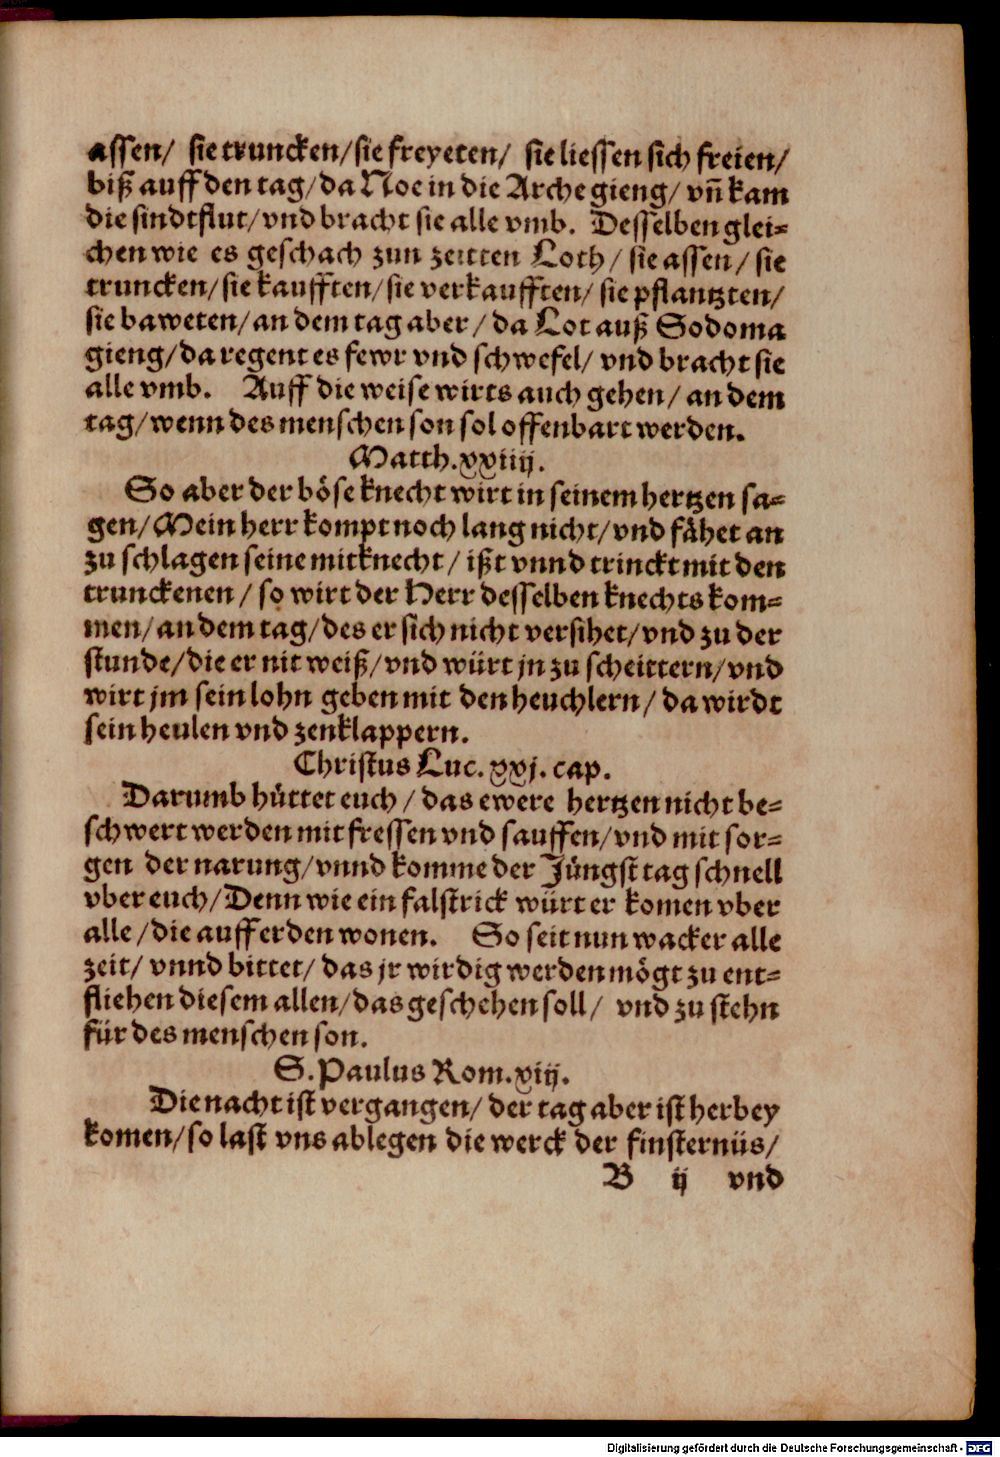 assen/ sie truncken/sie freyeten/ sie liessen sich freien/
biß auff den tag/da Noe in die Arche gieng/ vñ kam
die sindtflut/vnd bracht sie alle vmb. Desselben glei-
chen wie es geschach zun zeitten Loth/ sie assen/ sie
truncken/sie kaufften/sie verkaufften/ sie pflantzten/
sie baweten/an dem tag aber/ da Lot auß Sodoma
gieng/da regent es fewr vnd schwefel/ vnd bracht sie
alle vmb. Auff die weise wirts auch gehen/ an dem
tag/wenn des menschen son sol offenbart werden.
Matth.xxiiij.
So aber der böse knecht wirt in seinem hertzen sa-
gen/Mein herr kompt noch lang nicht/vnd fähet an
zu schlagen seine mitknecht/ ißt vnnd trinckt mit den
trunckenen/ so wirt der Herr desselben knechts kom-
men/an dem tag/des er sich nicht versihet/vnd zu der
stunde/die er nit weiß/vnd würt jn zu scheittern/vnd
wirt jm sein lohn geben mit den heuchlern/ da wirdt
sein heulen vnd zenklappern.
Christus Luc. xxj. cap.
Darumb hüttet euch/ das ewere hertzen nicht be-
schwert werden mit fressen vnd sauffen/vnd mit sor-
gen der narung/vnnd komme der Jüngst tag schnell
vber euch/Denn wie ein falstrick würt er komen vber
alle/die auff erden wonen. So seit nun wacker alle
zeit/ vnnd bittet/ das jr wirdig werden mögt zu ent-
fliehen diesem allen/das geschehen soll/ vnd zu stehn
für des menschen son.
S. Paulus Rom.xiij.
Die nacht ist vergangen/ der tag aber ist herbey
komen/so last vns ablegen die werck der finsternüs/
B ij vnd
Digitalisierung gefördert durch die Deutsche Forschungsgemeinschaft - DFG